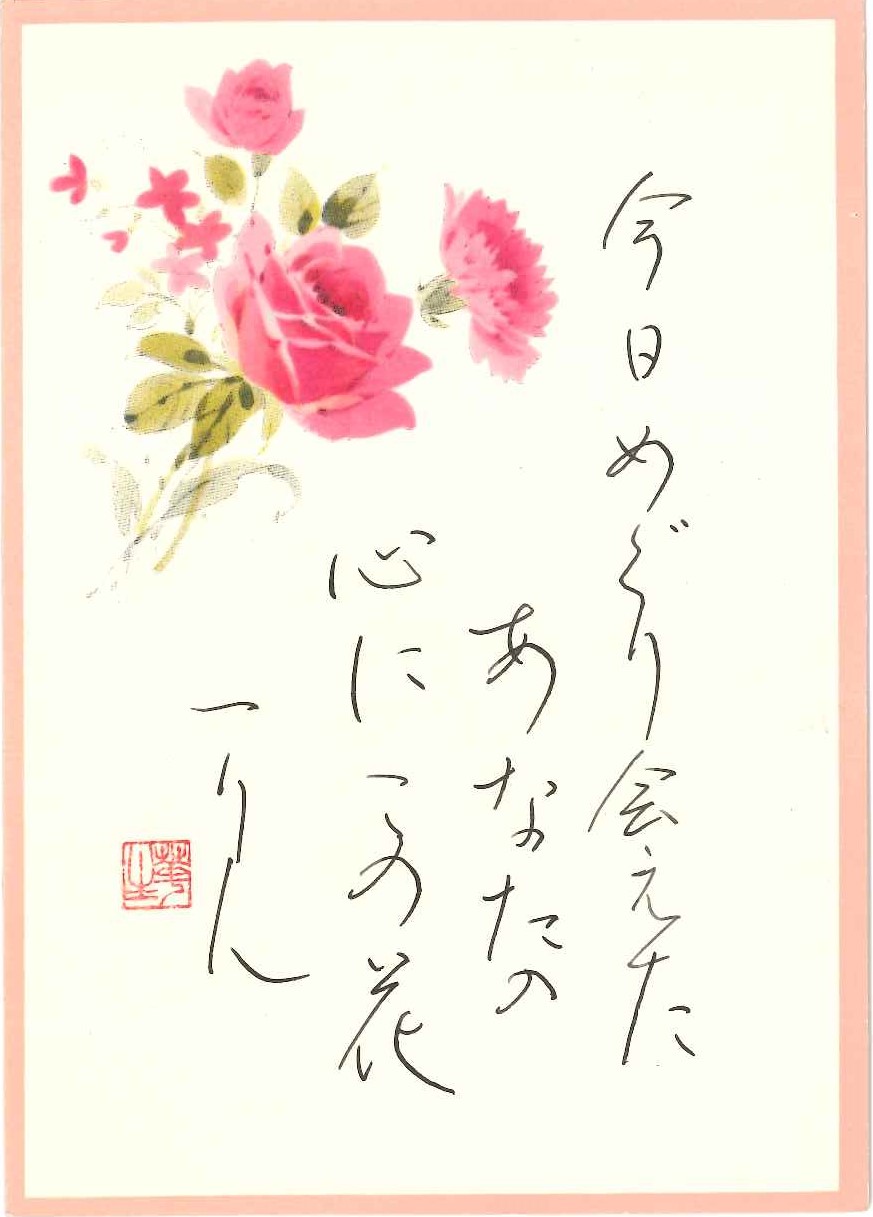 今日めぐり会えた
あなたの
心にこの花
一りん